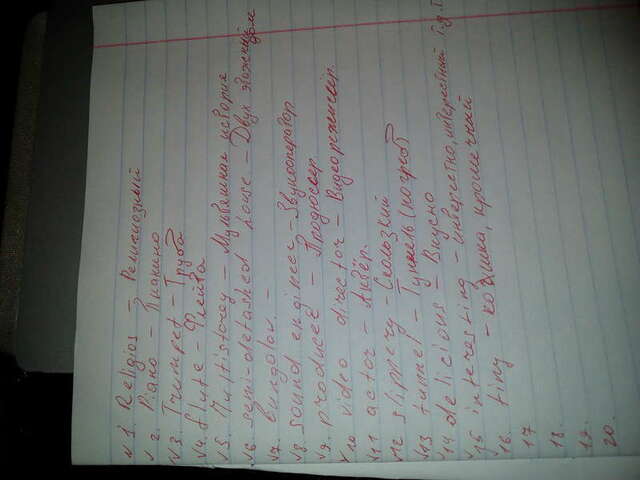 ✓ 1. Religios – Религиозный
✓ 2. Piano – Пианино
✓ 3. Trumpet – Труба
✓ 4. flute – Флейта
✓ 5. Multistorey – Мультяшная история
✓ 6. semi-detashed house – Двух этажный дом
✓ 7. bungalou. –
✓ 8 sound engineer – Звукооператор
✓ 9. producer – Продюссер.
✓ 10 video director – Видеорежиссёр.
✓ 11 actor – Актёр.
✓ 12 slippery – Скользкий
✓ 13 tunnel – Туннель (погреб)
✓ 14 delicious – Вкусно
✓ 15 interesting – интерестно, интерестный т.д.т
16. tiny – крошечный
17
18.
19.
20.